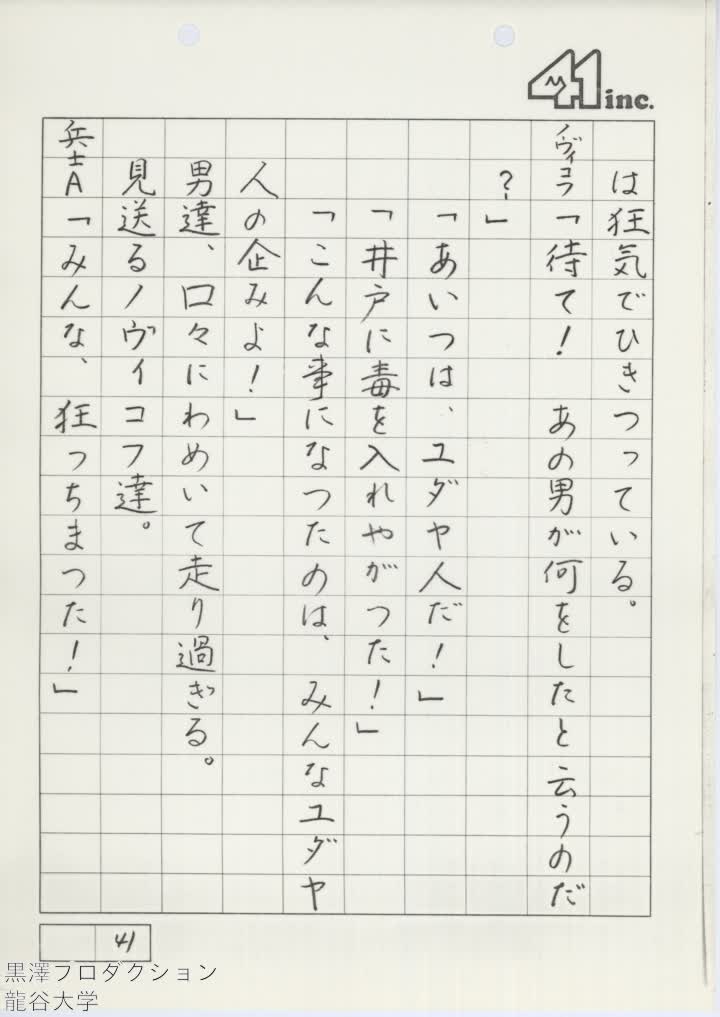 41 inc.
は狂気でひきつっている。
ノヴィコフ「待て！　あの男が何をしたと云うのだ
？」
「あいつは、ユダヤ人だ！」
「井戸に毒を入れやがった！」
「こんな事になつたのは、みんなユダヤ
人の企みよ！」
男達、口々にわめいて走り過ぎる。
見送るノヴィコフ達。
兵士A「みんな、狂っちまつた！」
41
黒澤プロダクション
龍谷大学